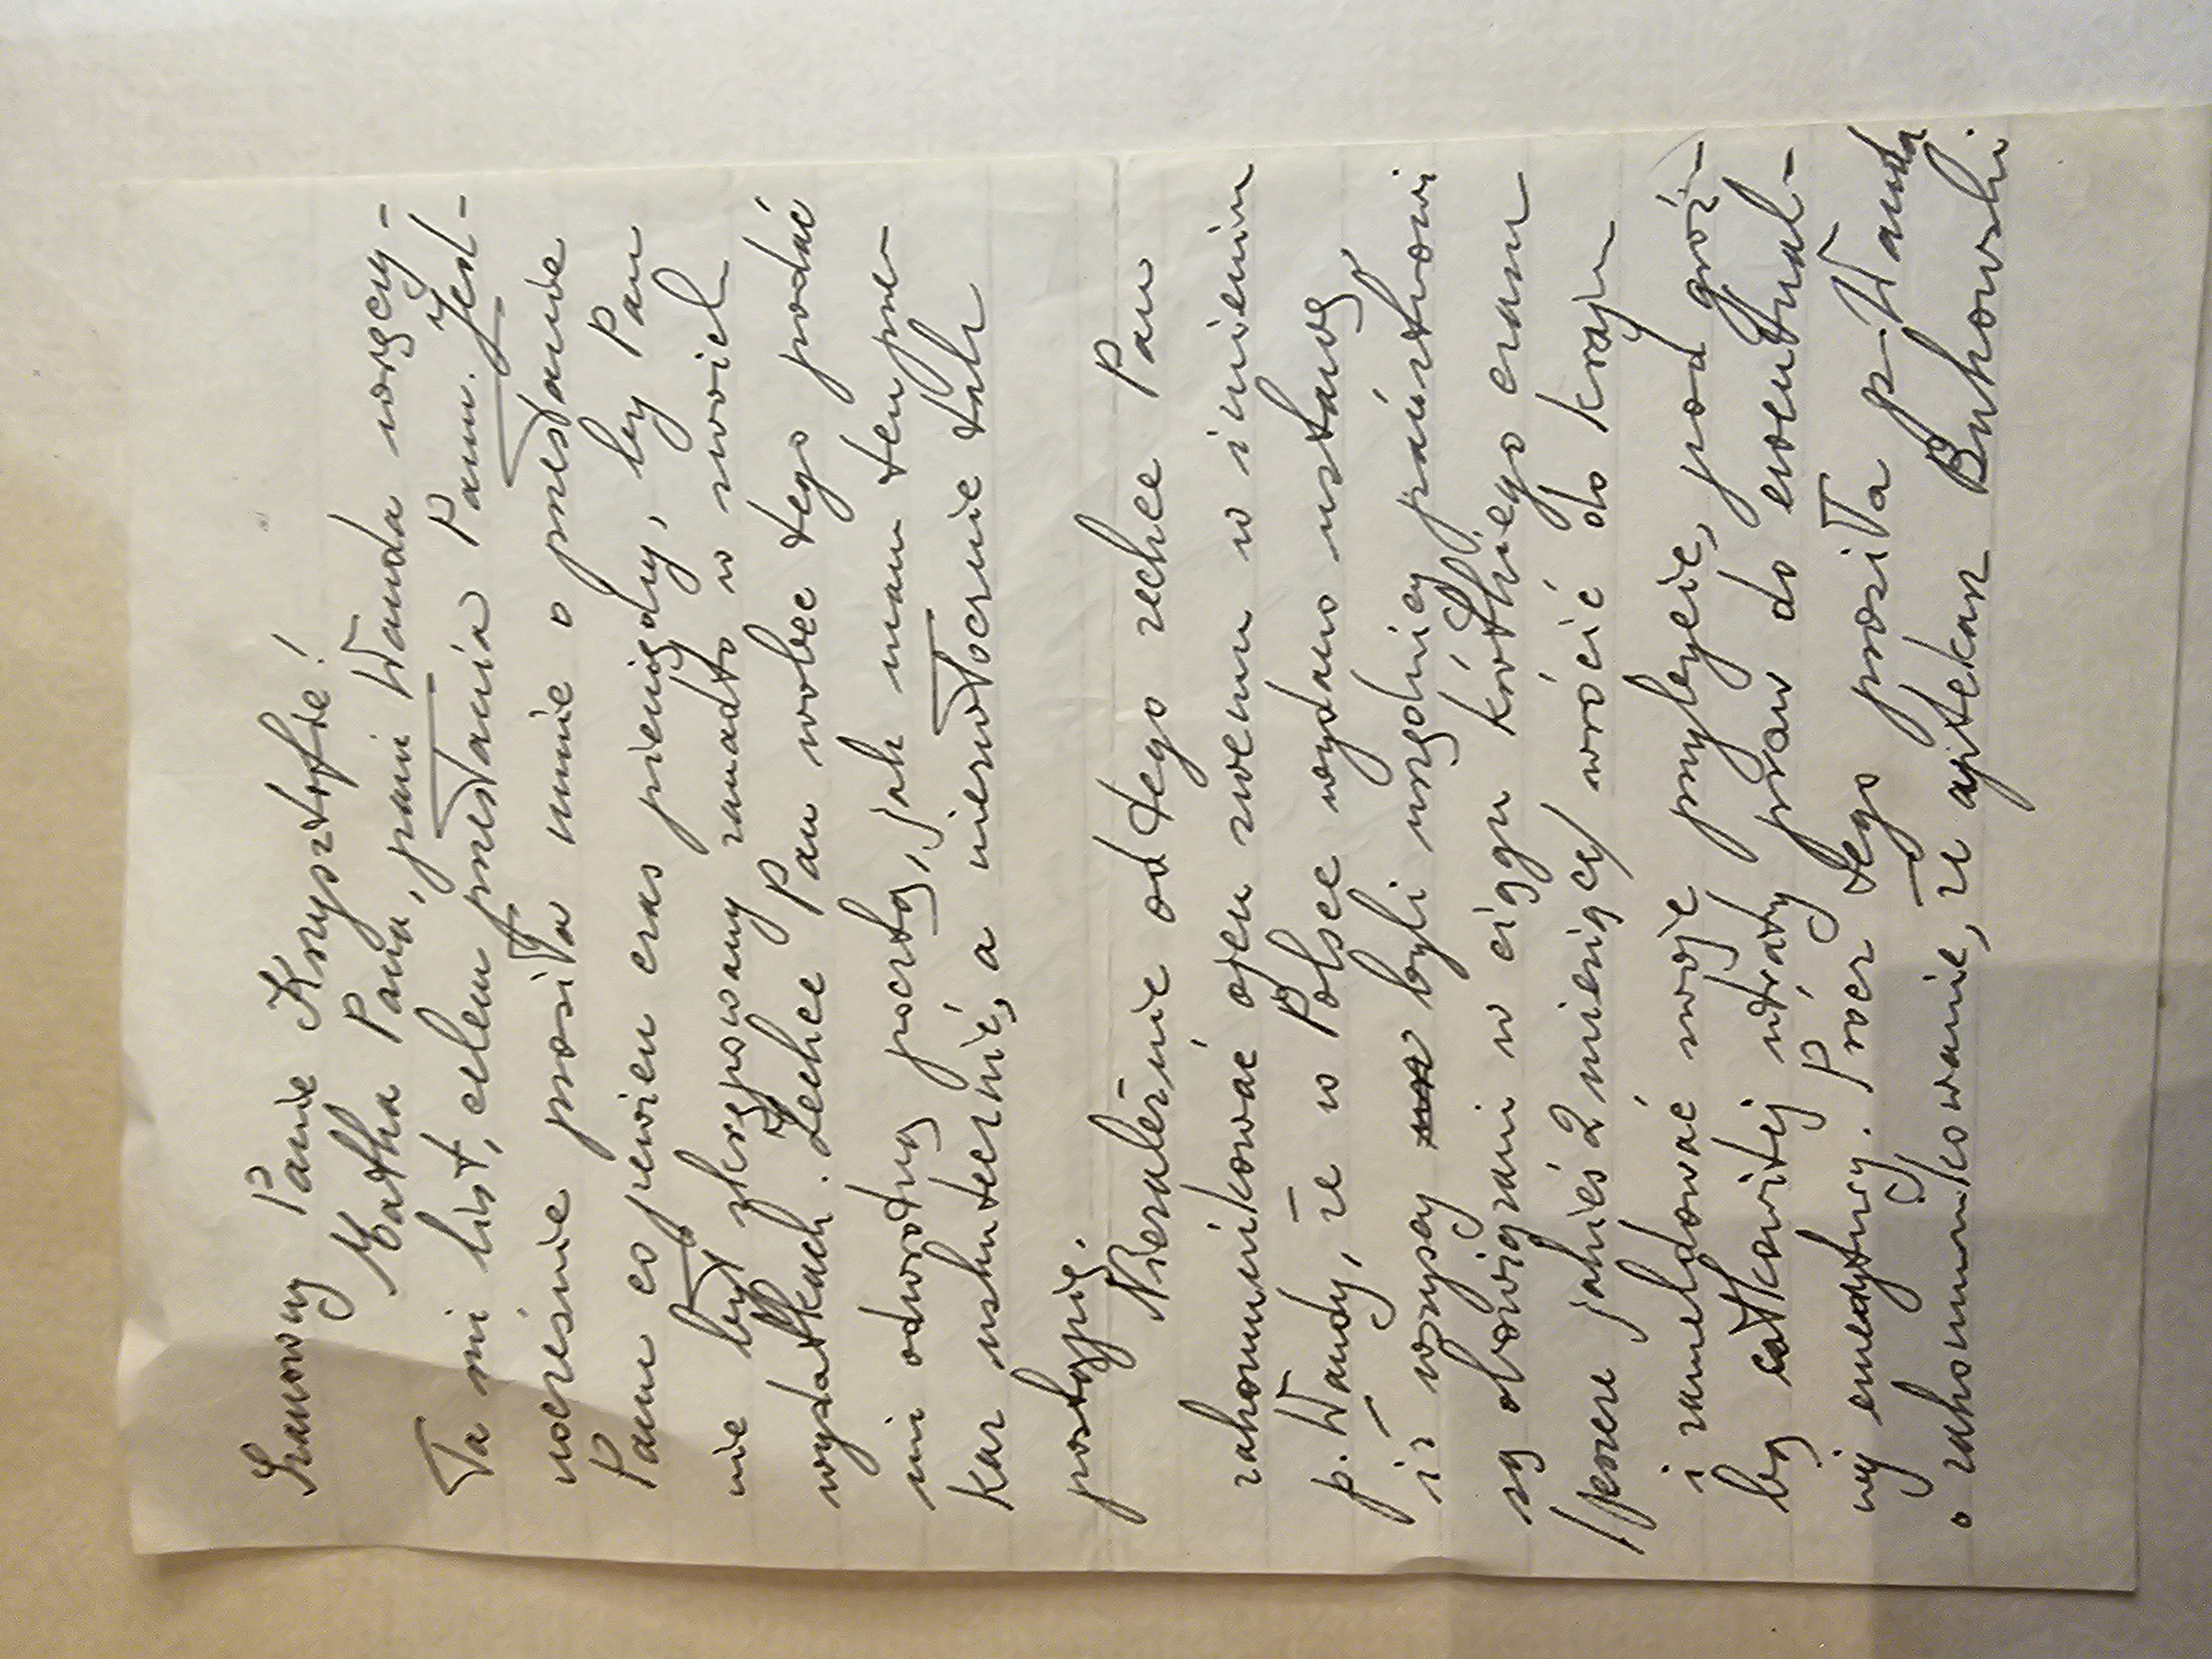 Szanowny Panie Krzysztofie!
Matka Pana, pani Wanda wręczy-
ła mi list, celem przesłania Panu. Jed-
nocześnie prosiła mnie o przesłanie
Panu co pewien czas pieniędzy, by Pan
nie był skrępowany zanadto w swoich
wydatkach. Zechce Pan wobec tego podać
mi odwrotną pocztą, jak mam ten prze-
kaz uskutecznić, a niezwłocznie tak
postąpię.
Niezależnie od tego zechce Pan
zakomunikować ojcu swemu w imieniu
p. Wandy, że w Polsce wydano ustawę
iż wszyscy byli urzędnicy państwowi
są obowiązani w ciągu krótkiego czasu
/jeszcze jakieś 2 miesiące/ wrócić do kraju
i zameldować swoje przybycie, pod groź-
bą całkowitej utraty praw do ewentual-
nej emerytury. Prócz tego prosiła p. Wanda
o zakomunikowanie, że aptekarz Bukowski